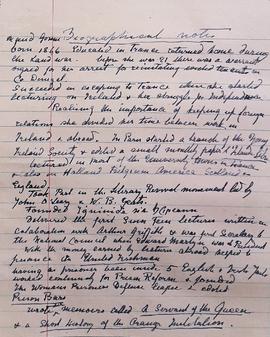 Biographical notes
born 1866 Educated in France returned home during
the Land war. When she was 21 there was a warrant
issued for her arrest for reinstating evicted tenants in
Co Donegal.
Succeeded in escaping to France where she started
lecturing on Ireland & her struggle for Independence
Realising the importance of keeping up foreign
relations she divided her time between work in
Ireland & abroad. In Paris started a branch of the Young
Ireland Society & edited a small monthly paper
lectured in most of the University towns in France
& also in Holland Belgium America Scotland &
England
Took Part in the Literary Revival movement led by
John O'Leary & W. B. Yeats.
Founded
Delivered the first Sinn Fein lectures written in
Colaboration with Arthur Griffith & was first Secretary to
the National Council when Edward Martyn was President
With the money earned by lectures abroad helped to
finance the United Irishman
having as prisoner been inside 5 English & Irish Jails
worked continually for Prison Reform & founded
the Womans Prisoners Defence League & edited
Prison Bars
wrote memoirs called A Servant of the Queen
& a Short History of the Orange Institution.